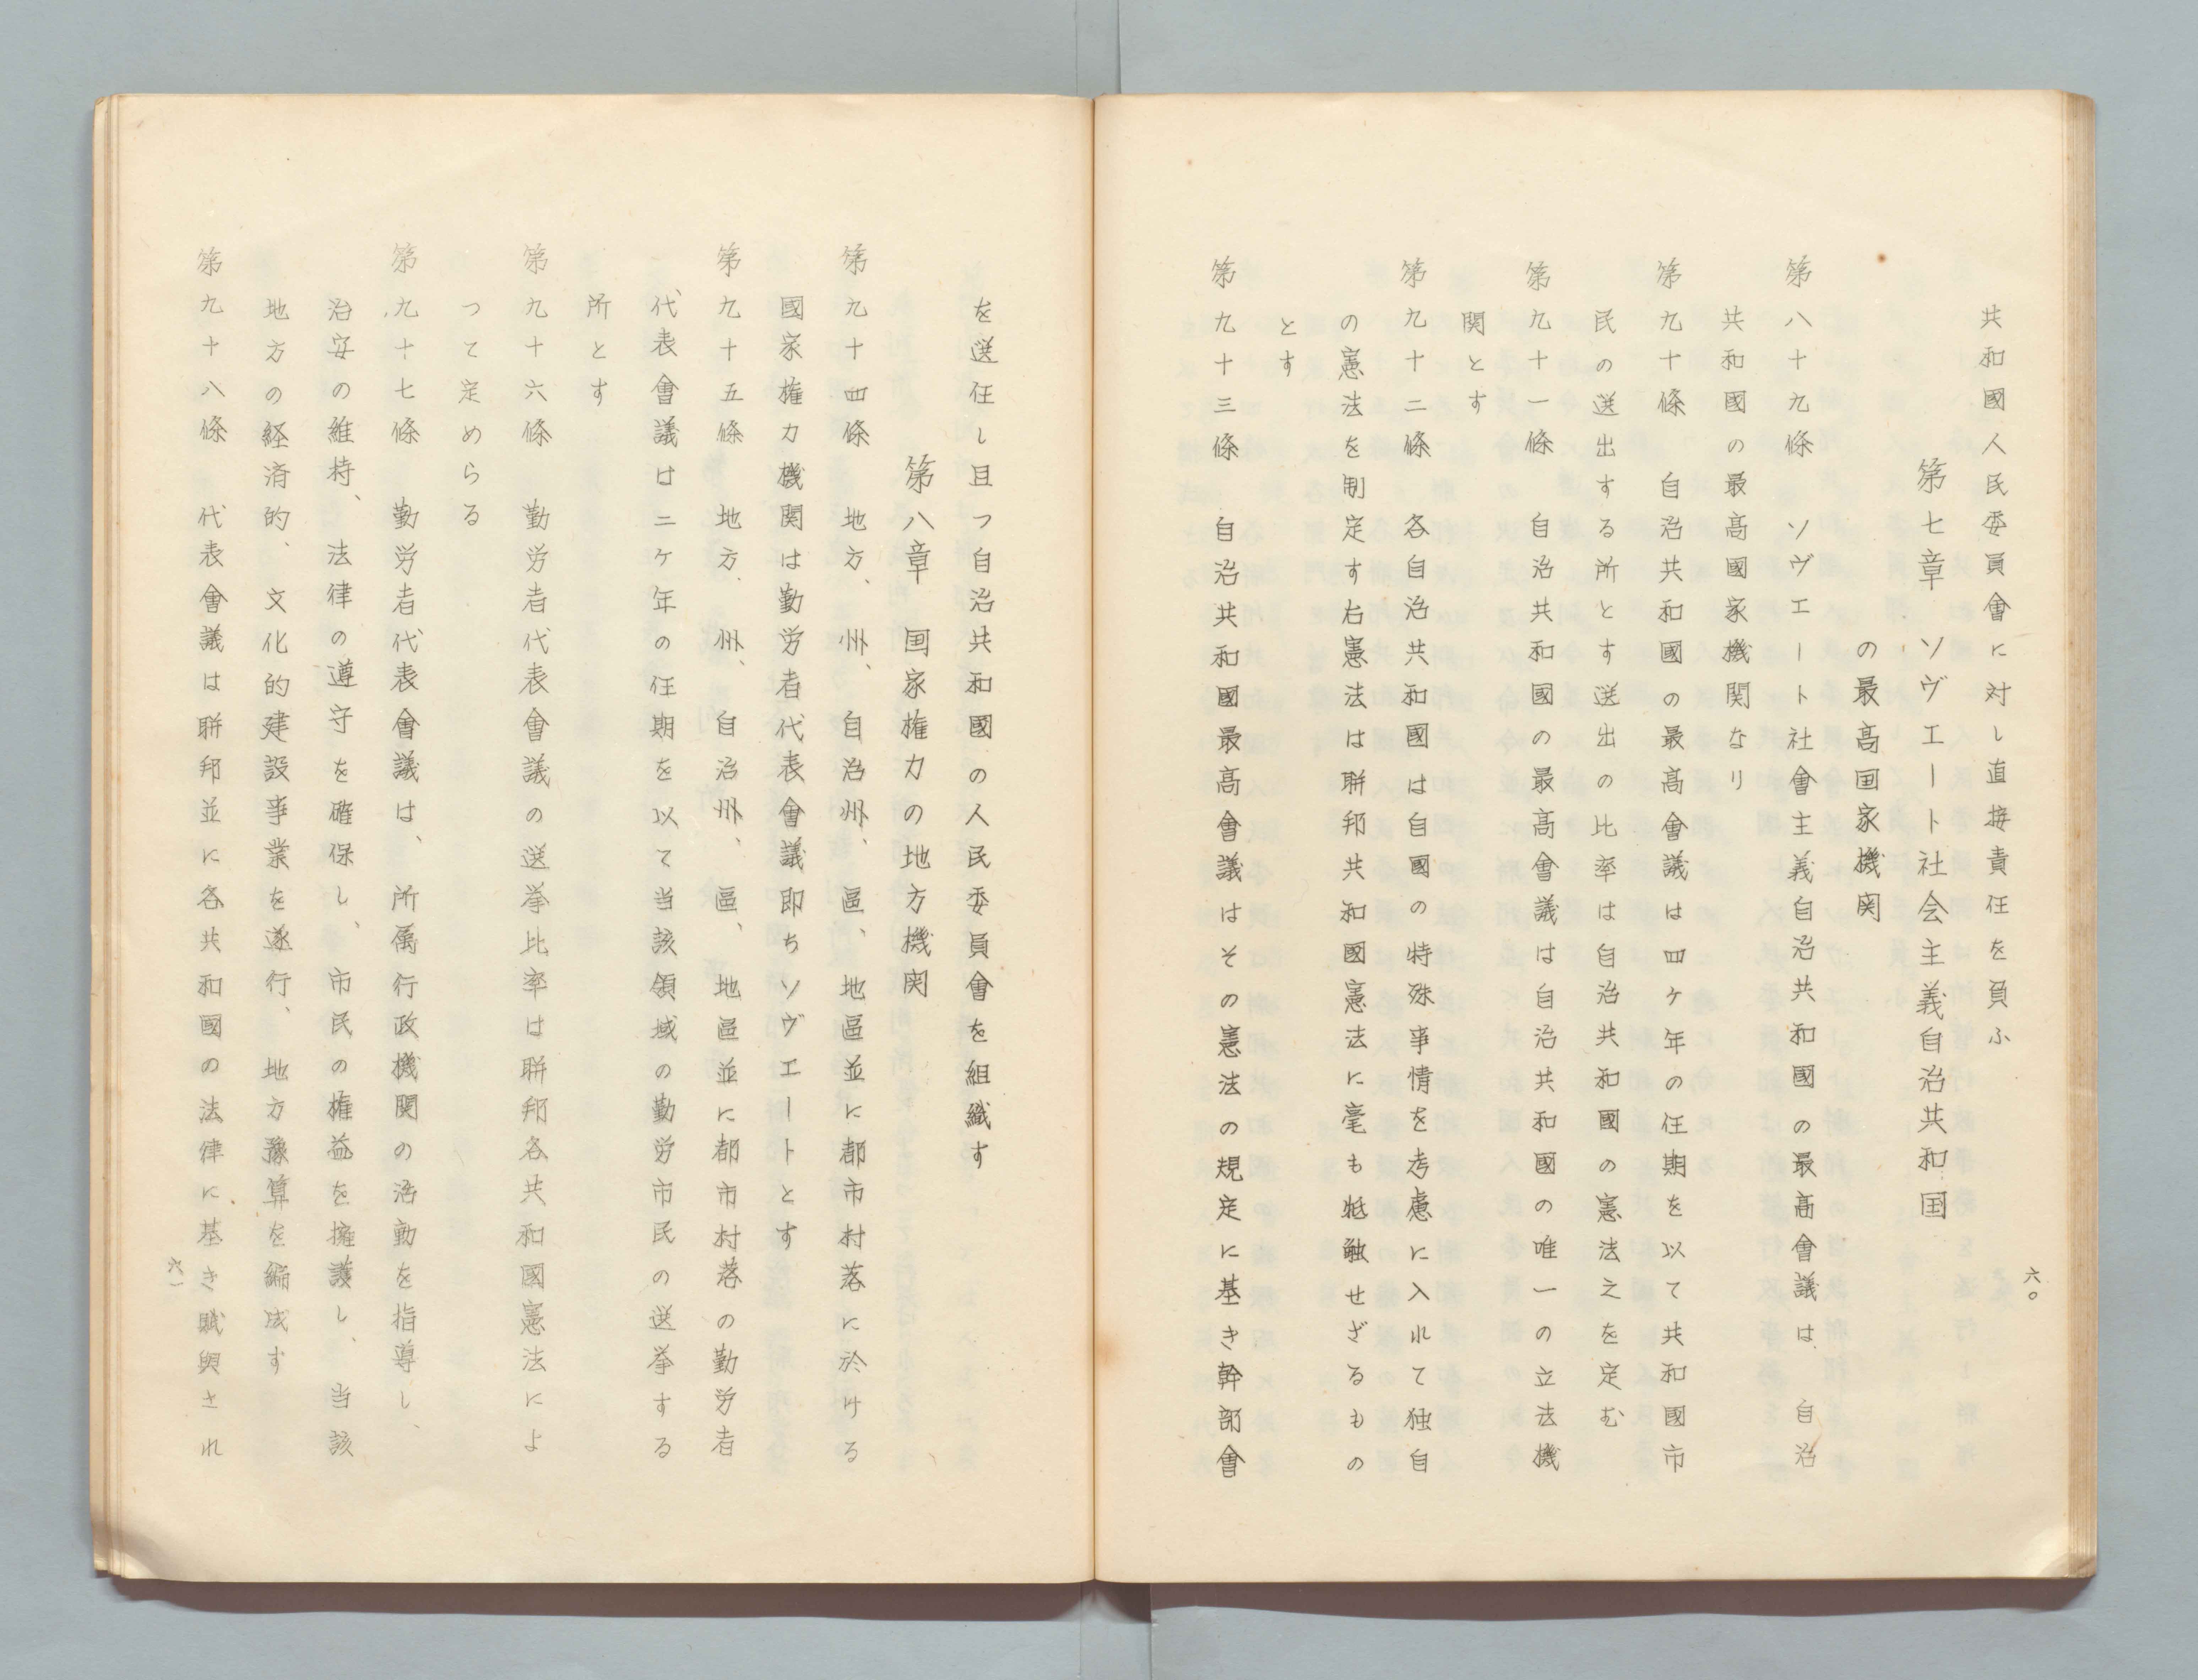 共和國人民委員會に対し直接責任を負ふ
第七章 ソヴエート社会主義自治共和国
の最高国家機関
第八十九條 ソヴエート社會主義自治共和國の最高會議は 自治
共和國の最高國家機関なり
第九十條 自治共和國の最高會議は四ヶ年の任期を以て共和國市
民の選出する所とす選出の比率は自治共和國の憲法之を定む
第九十一條 自治共和國の最高會議は自治共和國の唯一の立法機
関とす
第九十二條 各自治共和國は自國の特殊事情を考慮に入れて独自
の憲法を制定す右憲法は聯邦共和國憲法に毫も牴触せざるもの
とす
第九十三條 自治共和國最高會議はその憲法の規定に基き幹部會
六〇
を選任し且つ自治共和國の人民委員會を組織す
第八章 国家権力の地方機関
第九十四條 地方、州、自治州、區、地區並に都市村落に於ける
國家権力機関は勤労者代表會議即ちソヴエートとす
第九十五條 地方、州、自治州、區、地區並に都市村落の勤労者
代表會議は二ヶ年の任期を以て当該領域の勤労市民の選挙する
所とす
第九十六條 勤労者代表會議の選挙比率は聯邦各共和國憲法によ
つて定めらる
第九十七條 勤労者代表會議は、所属行政機関の活動を指導し、
治安の維持、法律の遵守を確保し、市民の権益を擁護し、当該
地方の経済的、文化的建設事業を遂行、地方豫算を編成す
第九十八條 代表會議は聯邦並に各共和國の法律に基き賦與され
六一